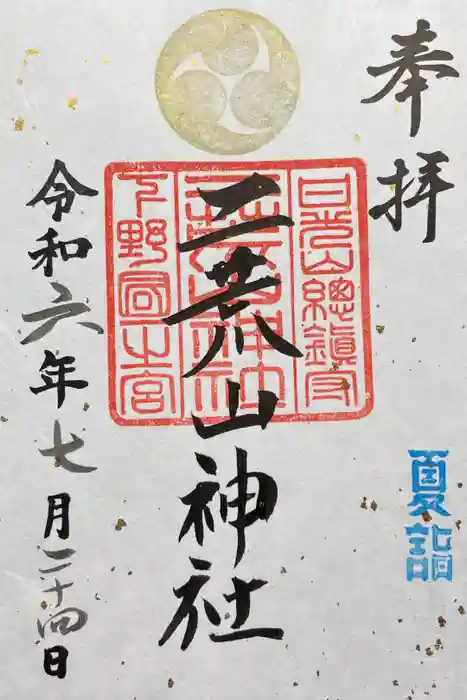 奉拝
夏詣
日光山總鎮守
二荒山神社
下野國一之宮
令和六年七月二十四日